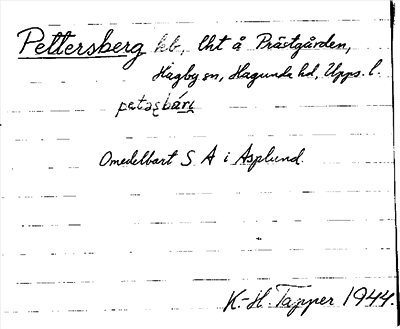 Pettersberg hb, lht å Prästgården,
Hagby sn, Hagunda hd, Upps. l.
Omedelbart S A i Asplund.
K.-H. Tapper 1944.